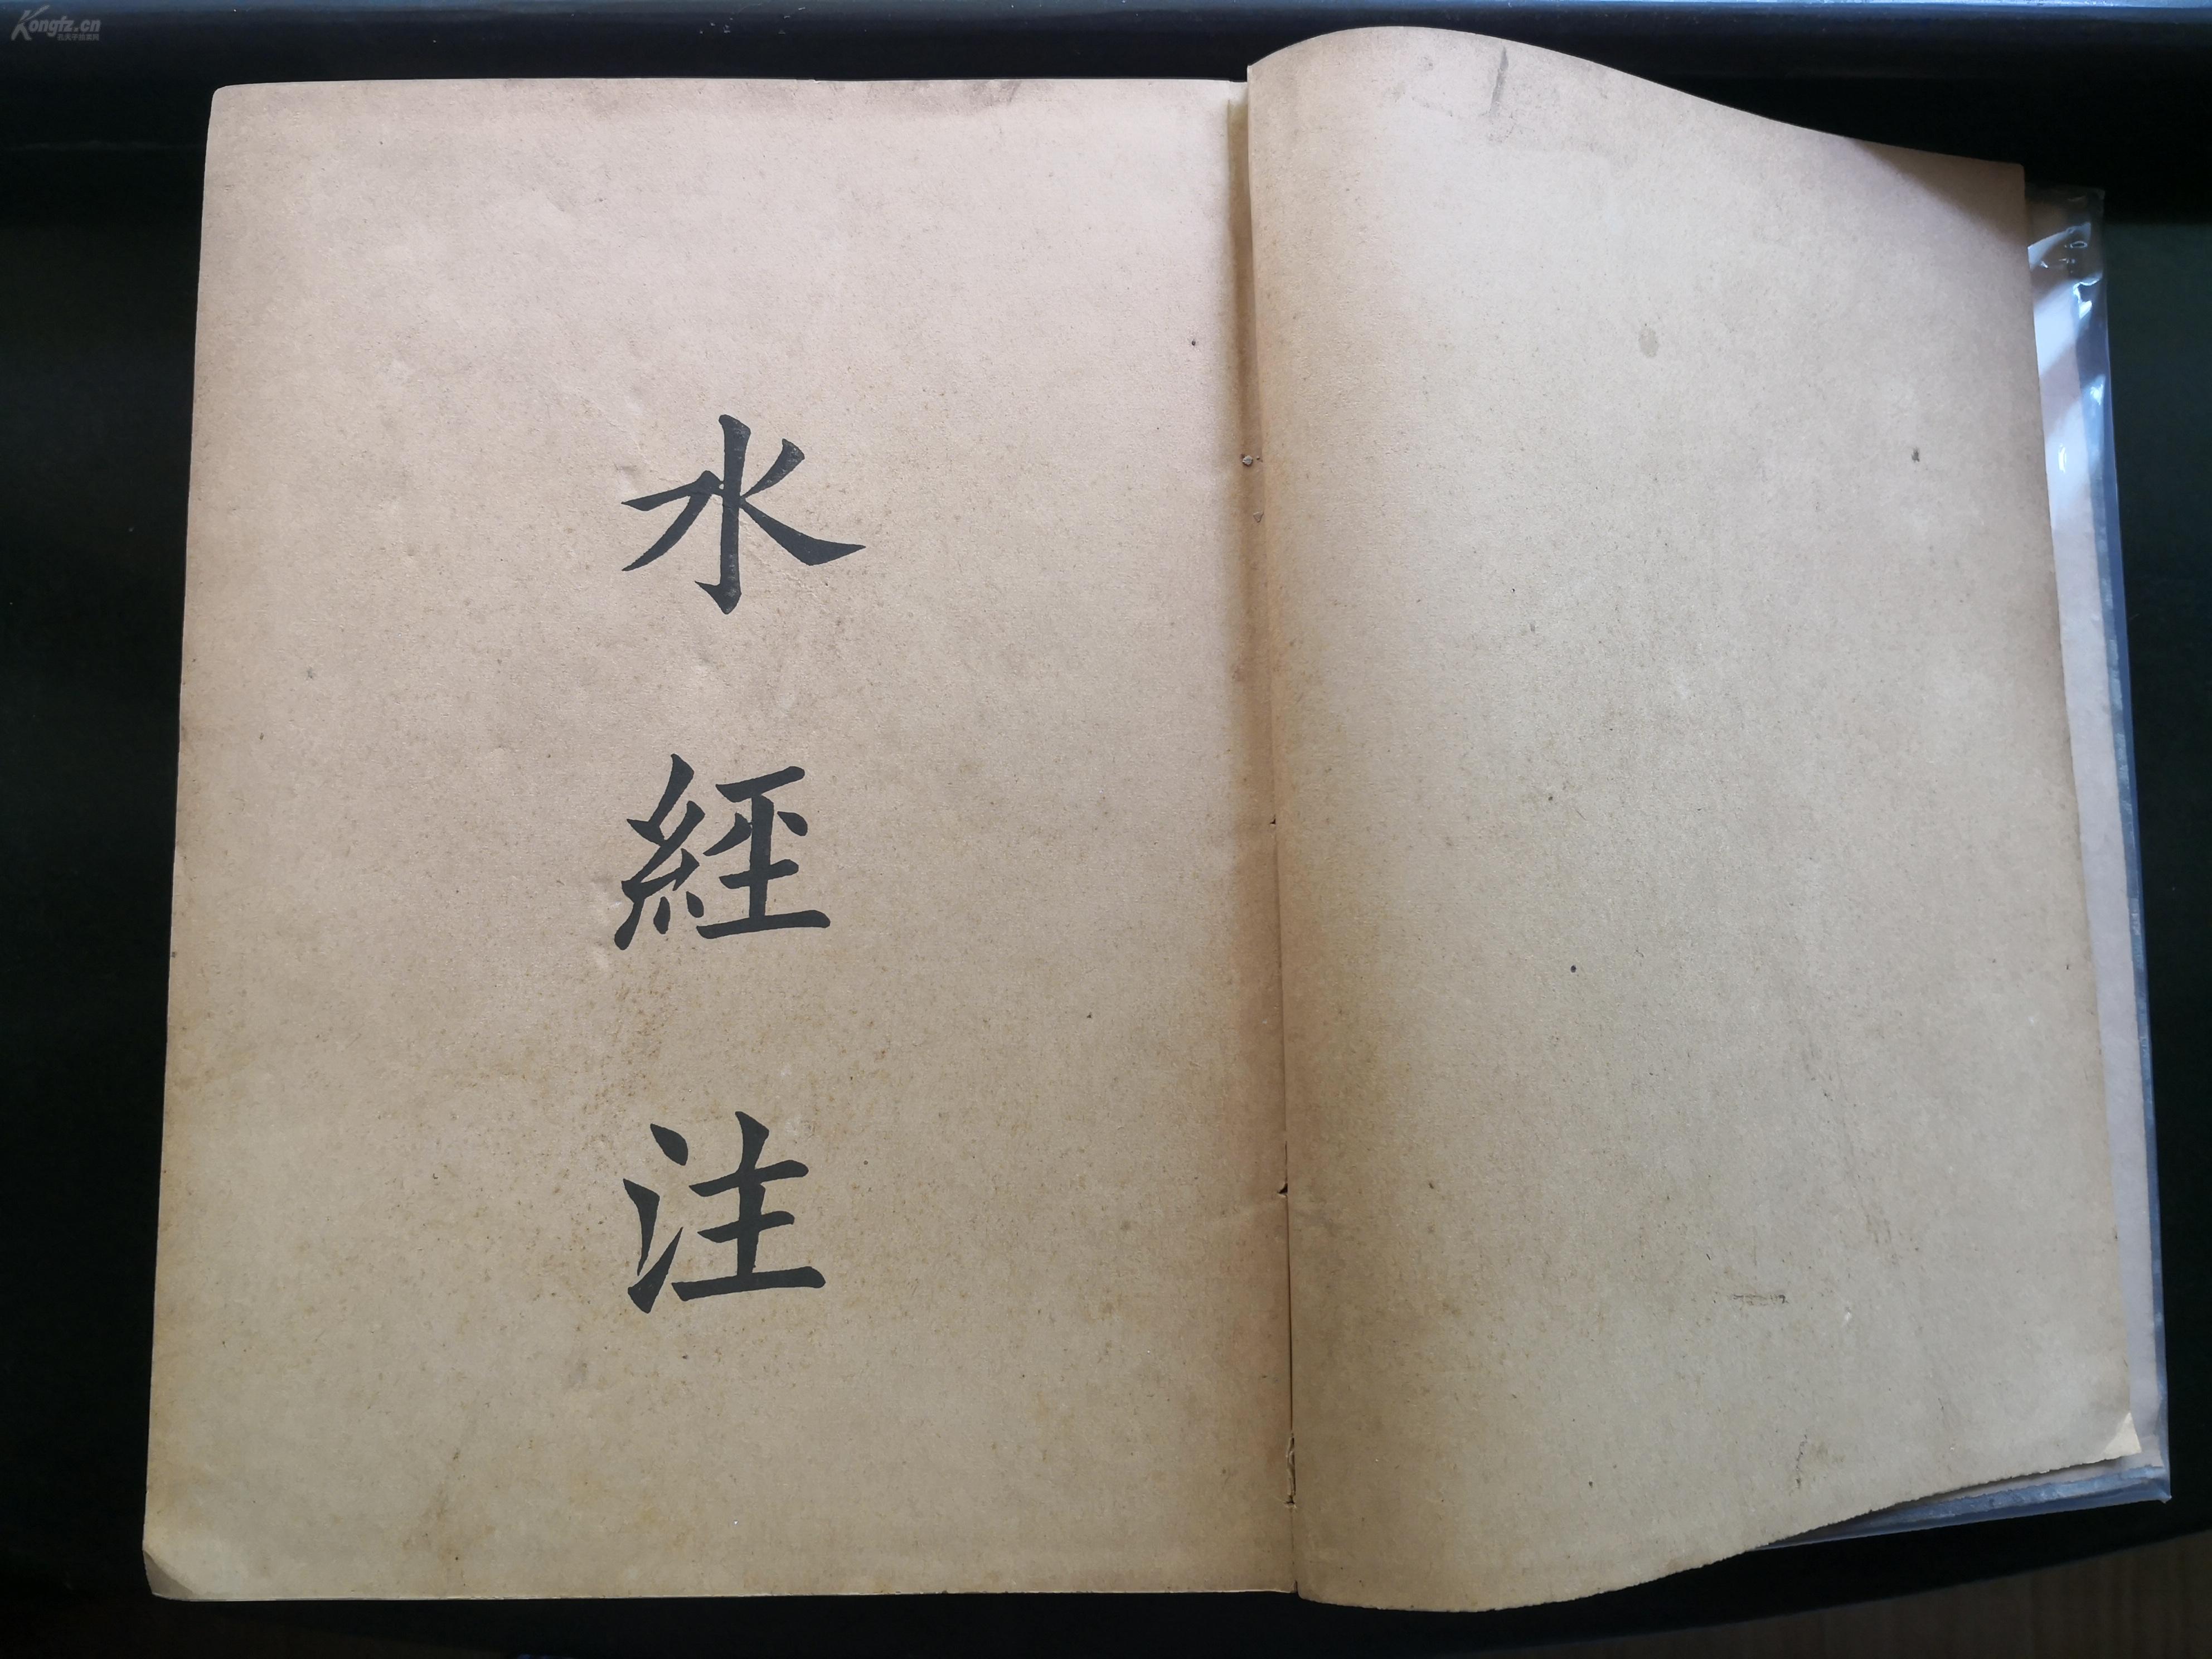 Kongfz.cn
水經注